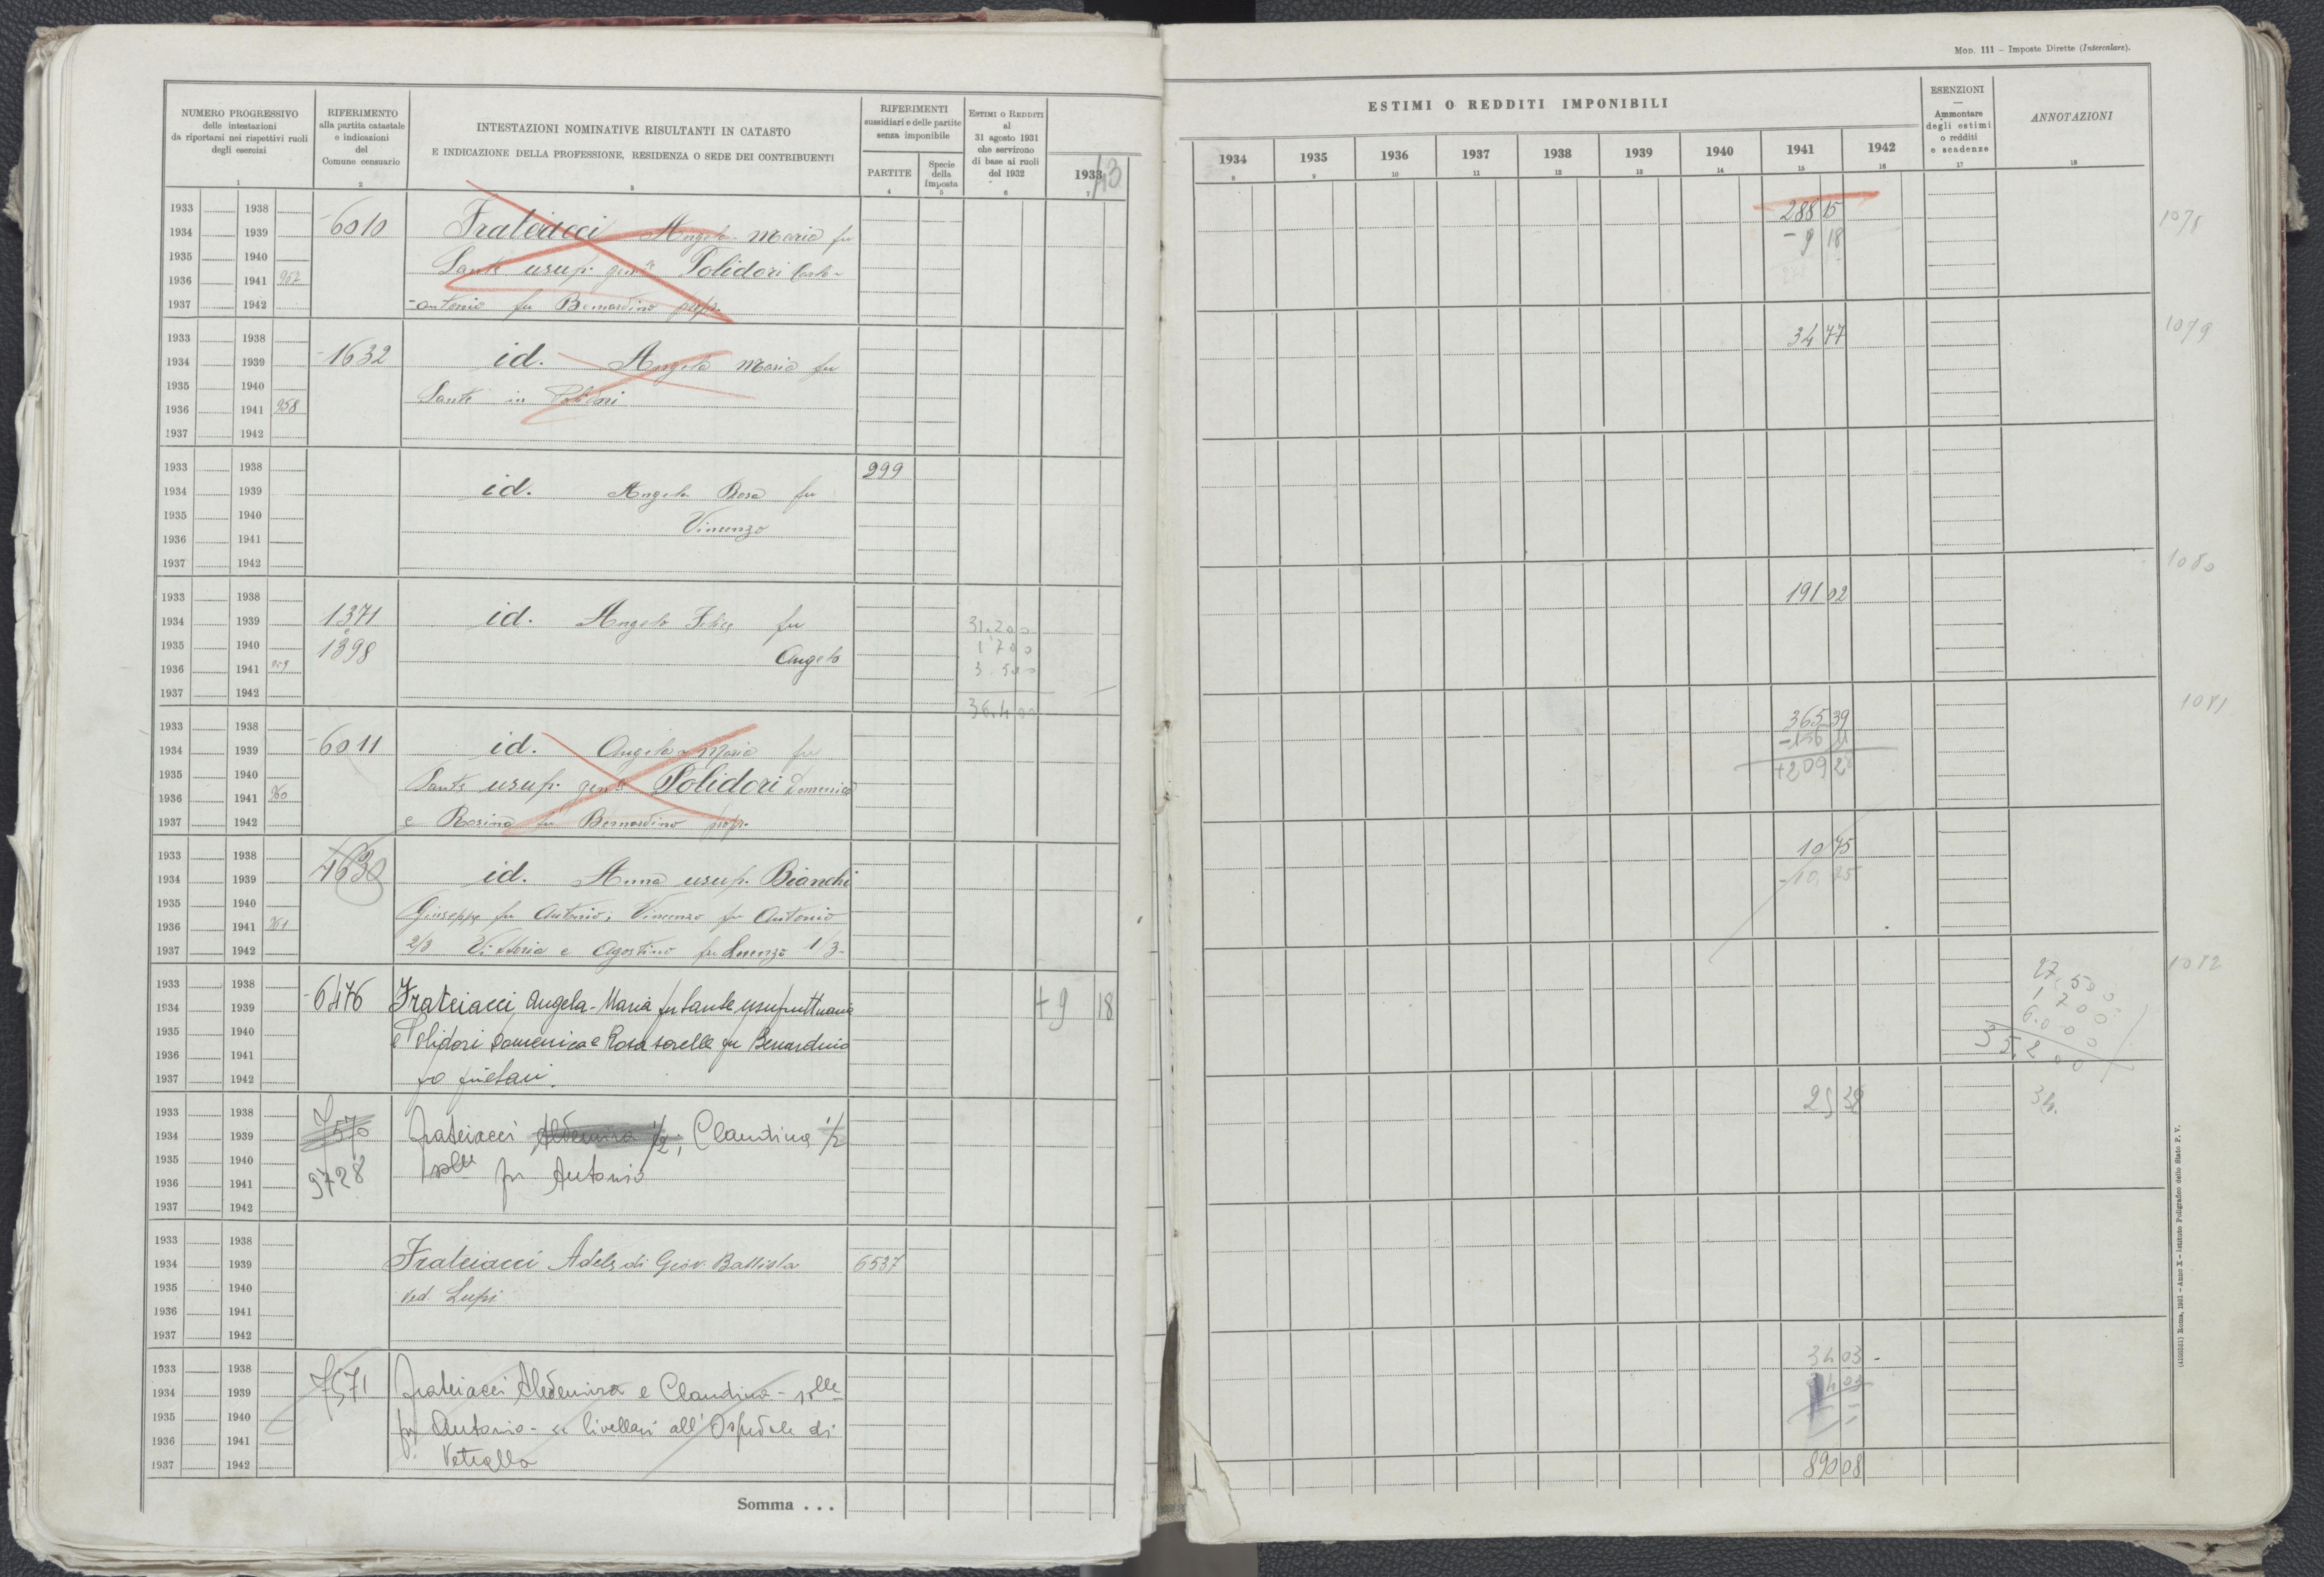 Mod. 111 – Imposte Dirette (Intercalare).
NUMERO PROGRESSIVO
delle intestazioni
da riportarsi nei rispettivi ruoli
degli esercizi
1
RIFERIMENTO
alla partita catastale
e indicazioni
del
Comune censuario
2
INTESTAZIONI NOMINATIVE RISULTANTI IN CATASTO
E INDICAZIONE DELLA PROFESSIONE, RESIDENZA O SEDE DEI CONTRIBUENTI
3
RIFERIMENTI
sussidiari e delle partite
senza imponibile
PARTITE
4
Specie
della
imposta
5
ESTIMI O REDDITI
al
31 agosto 1931
che servirono
di base ai ruoli
del 1932
6
1933 43
7
ESTIMI O REDDITI IMPONIBILI
1934 1935 1936 1937 1938 1939 1940 1941 1942
8 9 10 11 12 13 14 15 16
ESENZIONI
—
Ammontare
degli estimi
o redditi
e scadenze
17
ANNOTAZIONI
18
1933 1938
1934 1939
1935 1940
1936 1941 957
1937 1942
-6010
Frateiacci Angela-Maria fu
Sante usup. gen.le Polidori Carlo-
-antonio fu Bernardino propr.
288 15
- 9 18
1078
1933 1938
1934 1939
1935 1940
1936 1941 958
1937 1942
-1632
id. Angela Maria fu
Sante in Polidori
34 77
1079
1933 1938
1934 1939
1935 1940
1936 1941
1937 1942
id. Angela Rosa fu
Vincenzo
299
1933 1938
1934 1939
1935 1940
1936 1941 959
1937 1942
1371
e
1398
id. Angelo Felice fu
Angelo
31.200
1700
3.500
36.400
191 02
1080
1933 1938
1934 1939
1935 1940
1936 1941 960
1937 1942
-6011
id. Angela-Maria fu
Sante usuf. gen.le Polidori Domenica
e Rosina fu Bernardino propr.
365 39
-156 11
+209 28
1081
1933 1938
1934 1939
1935 1940
1936 1941 961
1937 1942
4630
id. Anna usuf. Bianchi
Giuseppe fu Antonio; Vincenzo fu Antonio
2/3 Vittoria e Agostino fu Lorenzo 1/3-
10 75
-10,75
1933 1938
1934 1939
1935 1940
1936 1941
1937 1942
-6476
Frateiacci Angela-Maria fu Sante usufruttuaria
e Polidori Domenica e Rosa sorelle fu Bernardino
proprietari.
+9 18
27.500
1700
6.000
35.200
1082
1933 1938
1934 1939
1935 1940
1936 1941
1937 1942
7570
9728
frateiacci Aldemira 1/2, Claudina 1/2
solle fu Antonio
25 38
34.
1933 1938
1934 1939
1935 1940
1936 1941
1937 1942
Frateiacci Adele di Giov. Battista
ved. Lupi
6537
1933 1938
1934 1939
1935 1940
1936 1941
1937 1942
7571
frateiacci Aldemira e Claudina - solle
fu Antonio - livellari all'Ospedale di
Vetralla
34 03 -
34 03
890 08
Somma . . .
(4160531) Roma, 1931 – Anno X – Istituto Poligrafico dello Stato P. V.